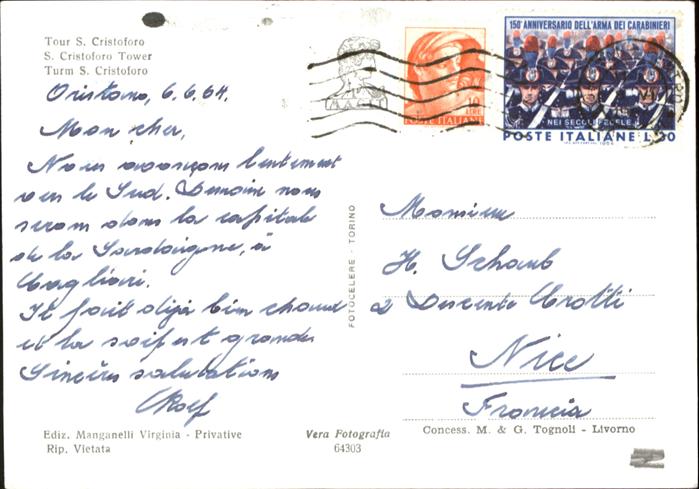 Tour S. Cristoforo
S. Cristoforo Tower
Turm S. Cristoforo
Oristano, 6.6.64.
Mon cher,
Nous avançons lentement
vers le Sud. Demain nous
serons dans la capitale
de la Sardaigne, à
Cagliari.
Il fait déjà bien chaud
et la soif est grande
Sincères salutations
Rolf
Ediz. Manganelli Virginia - Privative
Rip. Vietata
Vera Fotografia
64303
FOTOCELERE - TORINO
10
LIRE
POSTE ITALIANE
150° ANNIVERSARIO DELL'ARMA DEI CARABINIERI
NEI SECOLI FEDELE
POSTE ITALIANE L.30
1964
Monsieur
H. Schaub
2 Descente Crotti
Nice
Francia
Concess. M. & G. Tognoli - Livorno